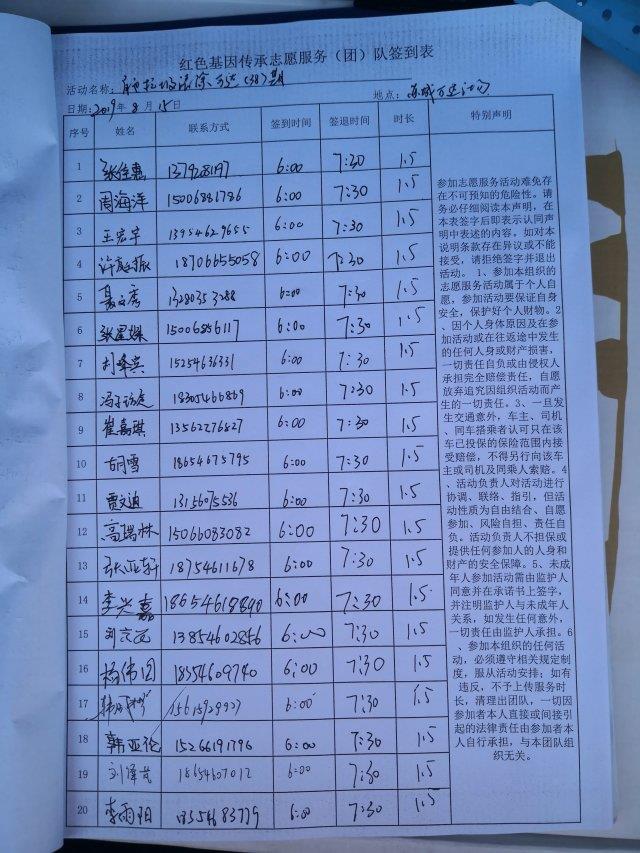 红色基因传承志愿服务（团）队签到表
活动名称：
日期：2019年8月15日 地点：
序号 姓名 联系方式 签到时间 签退时间 时长 特别声明
1 张佳惠 6:00 7:30 1.5
2 周海洋 15006881786 6:00 7:30 1.5
3 王宏宇 13954629655 6:00 7:30 1.5
4 18706655058 6:00 7:30 1.5
5 13280353288 6:00 7:30 1.5
6 15006856117 6:00 7:30 1.5
7 15254636331 6:00 7:30 1.5
8 18305466869 6:00 7:30 1.5
9 崔嘉琪 13562276827 6:00 7:30 1.5
10 胡雪 18654675795 6:00 7:30 1.5
11 贾文迪 13156075536 6:00 7:30 1.5
12 高瑞林 15066083082 6:00 7:30 1.5
13 张亚轩 18754611678 6:00 7:30 1.5
14 李兴嘉 18654618840 6:00 7:30 1.5
15 13854602856 6:00 7:30 1.5
16 杨伟国 18354609740 6:00 7:30 1.5
17 6:00 7:30 1.5
18 韩亚伦 15266191796 6:00 7:30 1.5
19 6:00 7:30 1.5
20 李雨阳 18354683779 6:00 7:30 1.5
参加志愿服务活动难免存
在不可预知的危险性。请
务必仔细阅读本声明，在
本表签字后即表示认同声
明中表述的内容。如对本
说明条款存在异议或不能
接受，请拒绝签字并退出
活动。 1、参加本组织的
志愿服务活动属于个人自
愿，参加活动要保证自身
安全，保护好个人财物。2
、因个人身体原因及在参
加活动或在往返途中发生
的任何人身或财产损害，
一切责任自负或由侵权人
承担完全赔偿责任，自愿
放弃追究因组织活动而产
生的一切责任。3、一旦发
生交通意外，车主、司机
、同车搭乘者认可只在该
车已投保的保险范围内接
受赔偿，不得另行向该车
主或司机及同乘人索赔。4
、活动负责人对活动进行
协调、联络、指引，但活
动性质为自由结合、自愿
参加、风险自担、责任自
负。活动负责人不担保或
提供任何参加人的人身和
财产的安全保障。5、未成
年人参加活动需由监护人
同意并在承诺书上签字，
并注明监护人与未成年人
关系，如发生任何意外，
一切责任由监护人承担。6
、参加本组织的任何活
动，必须遵守相关规定制
度，服从活动安排；如有
违反，不予上传服务时
长，清理出团队，一切因
参加者本人直接或间接引
起的法律责任由参加者本
人自行承担，与本团队组
织无关。